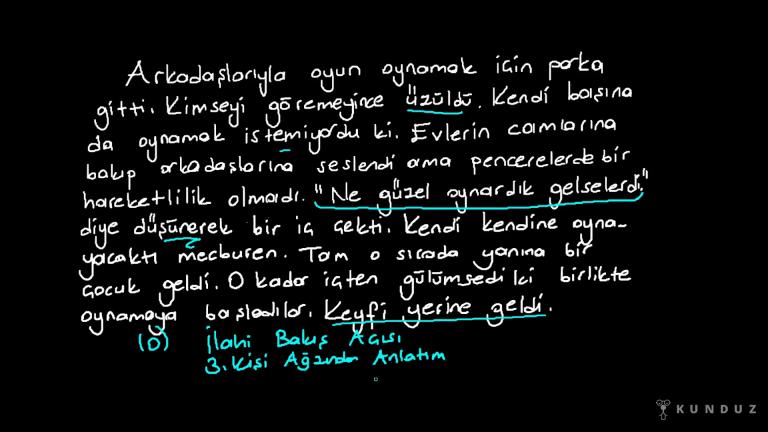 Arkadaşlarıyla oyun oynamak için parka
gitti. Kimseyi göremeyince üzüldü. Kendi başına
da oynamak istemiyordu ki. Evlerin camlarına
bakıp arkadaşlarına seslendi ama pencerelerde bir
hareketlilik olmadı. "Ne güzel oynardık gelselerdi."
diye düşünerek bir iç çekti. Kendi kendine oyna-
yacaktı mecburen. Tam o sırada yanına bir
çocuk geldi. O kadar içten gülümsedi ki birlikte
oynamaya başladılar. Keyfi yerine geldi.
(O) İlahi Bakış Açısı
3. Kişi Ağzından Anlatım
KUNDUZ